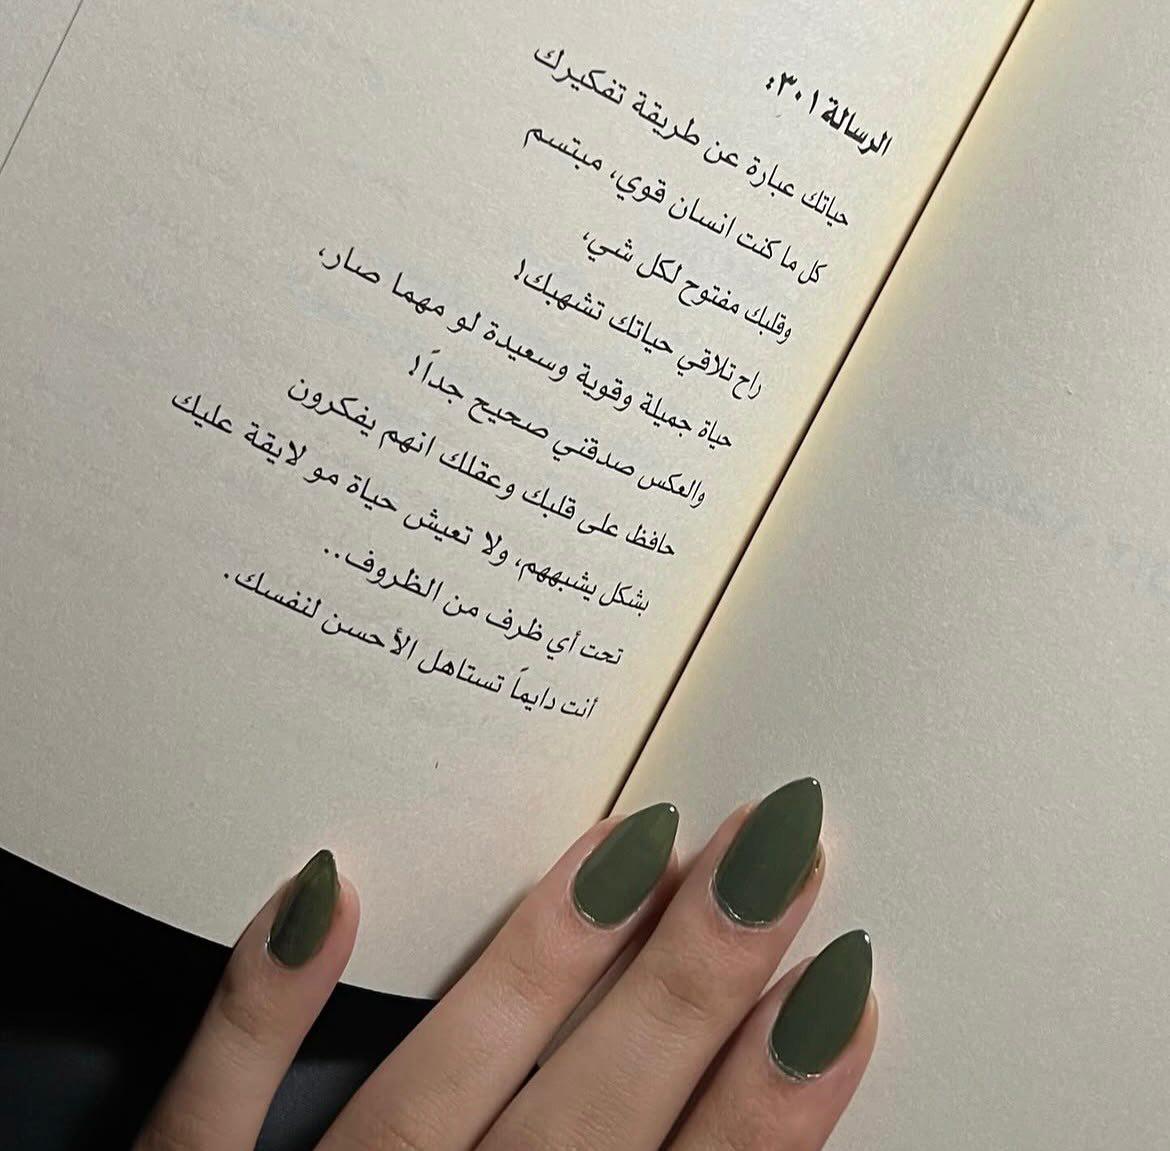 الرسالة ٣٠١:
حياتك عبارة عن طريقة تفكيرك
كل ما كنت انسان قوي، مبتسم
وقلبك مفتوح لكل شي،
راح تلاقي حياتك تشهبك!
حياة جميلة وقوية وسعيدة لو مهما صار،
والعكس صدقني صحيح جداً!
حافظ على قلبك وعقلك انهم يفكرون
بشكل يشبههم، ولا تعيش حياة مو لايقة عليك
تحت أي ظرف من الظروف..
أنت دايماً تستاهل الأحسن لنفسك.